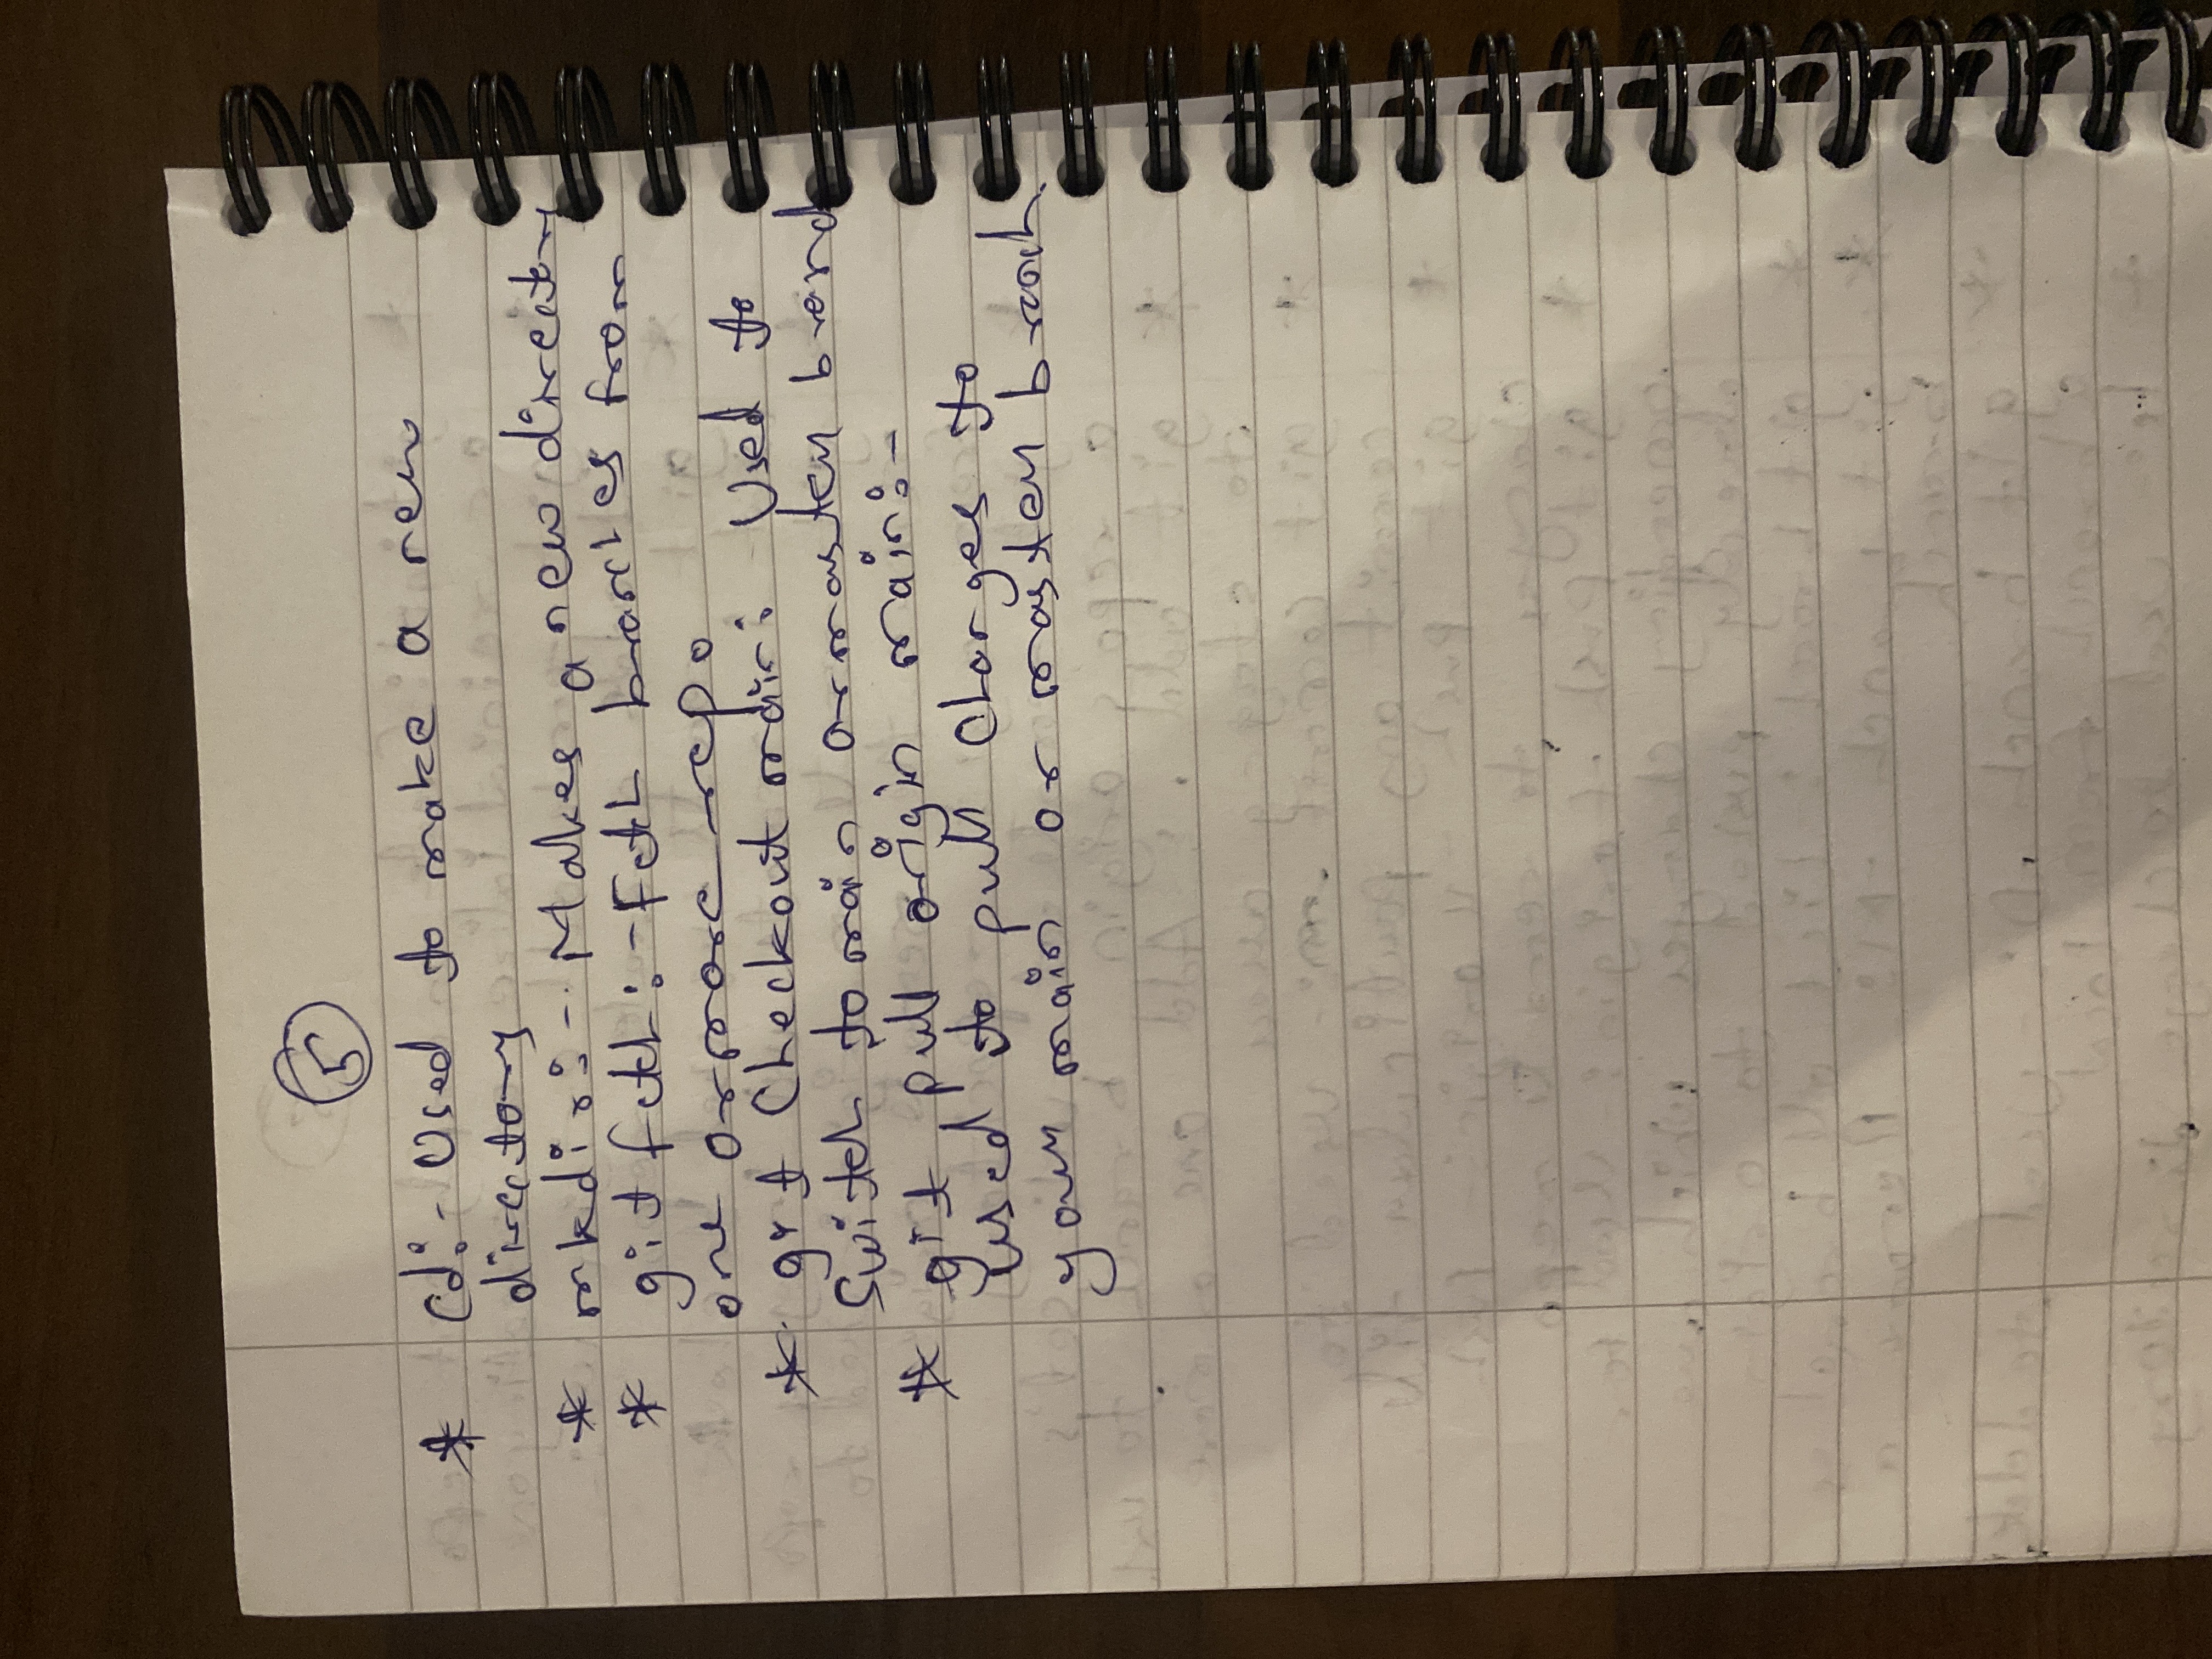 5
* Cd:- Used to make a new
directory
* mkdir:- Makes a new directory
* git fetch:- Fetch branches from
one or more repo
* git Checkout main: Used to
Switch to main or master branch
* git pull origin main:-
used to pull Changes to
your main or master branch.